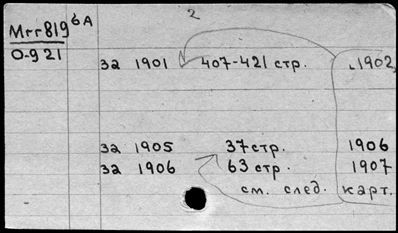 2
Mrr819 6A
0-921
за 1901 407-421 стр. 1902
за 1905 37 стр. 1906
за 1906 63 стр. 1907
см. след. карт.